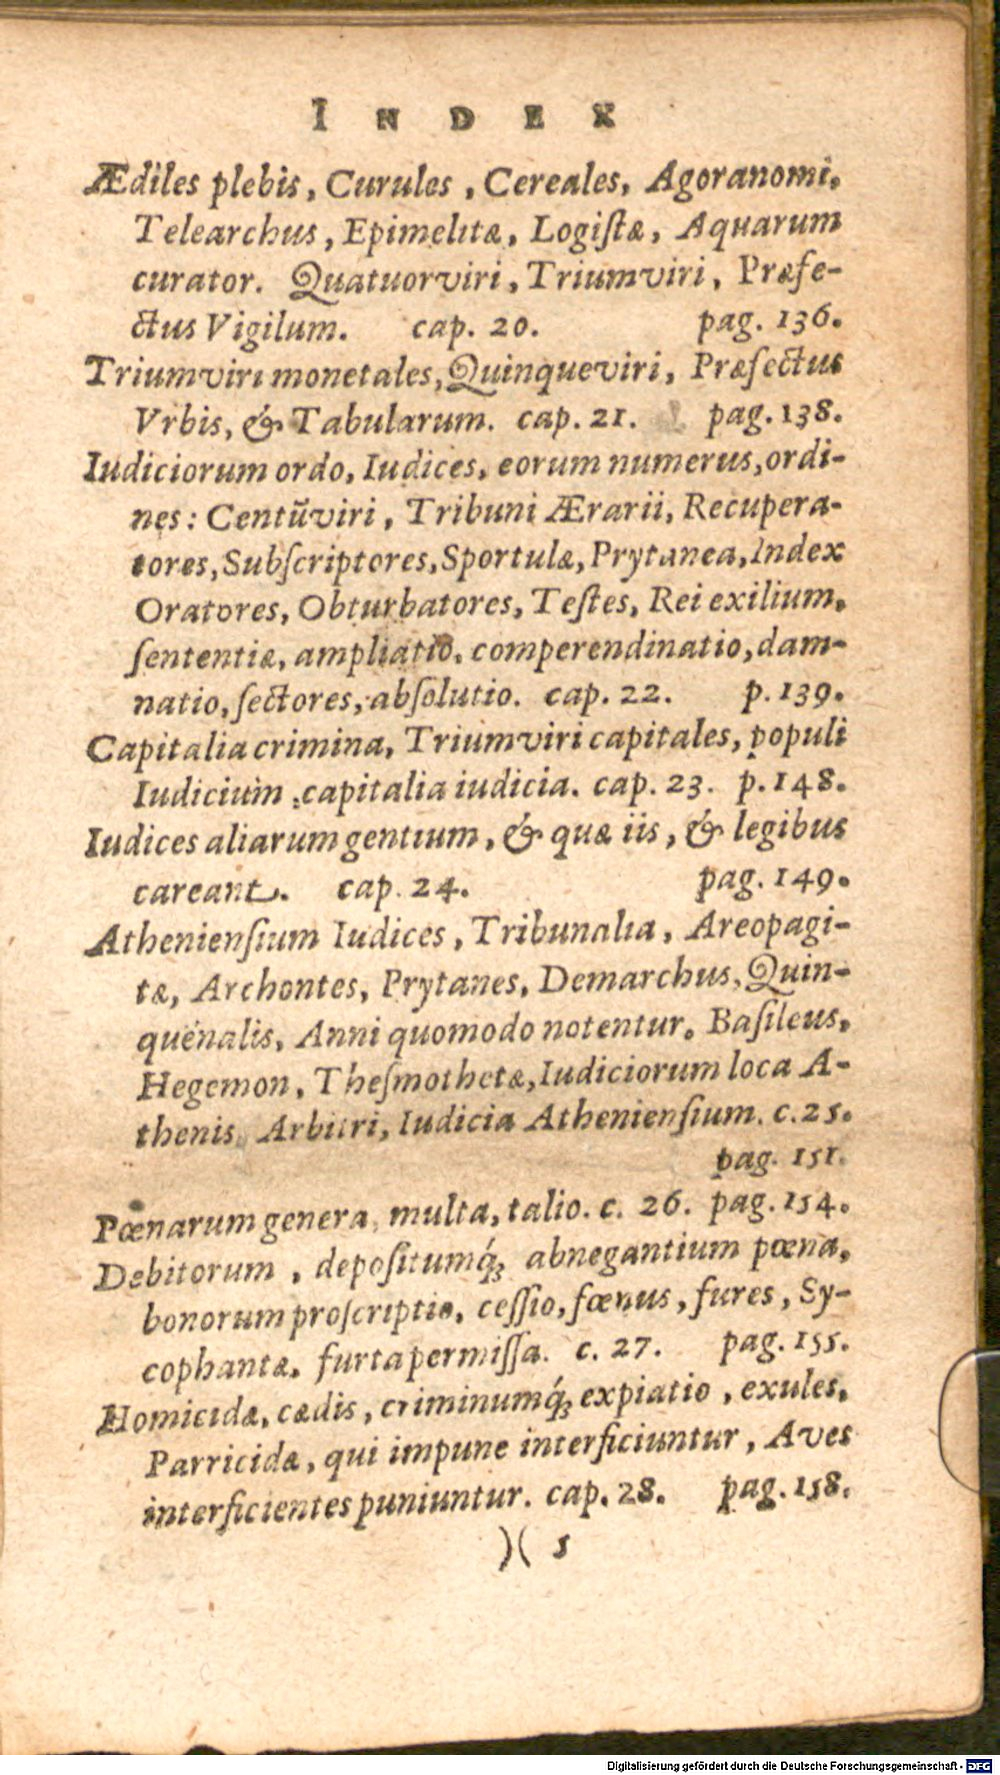 INDEX
Ædiles plebis, Curules, Cereales, Agoranomi,
Telearchus, Epimelitæ, Logiſtæ, Aquarum
curator. Quatuorviri, Triumviri, Præfe-
ctus Vigilum. cap. 20. pag. 136.
Triumviri monetales, Quinqueviri, Præfectus
Vrbis, & Tabularum. cap. 21. pag. 138.
Iudiciorum ordo, Iudices, eorum numerus, ordi-
nes: Centũviri, Tribuni Ærarii, Recupera-
tores, Subſcriptores, Sportulæ, Prytanea, Index
Oratores, Obturbatores, Teſtes, Rei exilium,
ſententiæ, ampliatio, comperendinatio, dam-
natio, ſectores, abſolutio. cap. 22. p. 139.
Capitalia crimina, Triumviri capitales, populi
Iudicium, capitalia iudicia. cap. 23. p. 148.
Iudices aliarum gentium, & quæ iis, & legibus
careant. cap. 24. pag. 149.
Athenienſium Iudices, Tribunalia, Areopagi-
tæ, Archontes, Prytanes, Demarchus, Quin-
quẽnalis, Anni quomodo notentur. Baſileus,
Hegemon, Theſmothetæ, Iudiciorum loca A-
thenis, Arbitri, Iudicia Athenienſium. c. 25.
pag. 151.
Pœnarum genera, multa, talio. c. 26. pag. 154.
Debitorum, depoſitumq́ꝫ abnegantium pœna,
bonorum proſcriptio, ceſſio, fœnus, fures, Sy-
cophantæ, furta permiſſa. c. 27. pag. 155.
Homicidæ, cædis, criminumq́ꝫ expiatio, exules,
Parricidæ, qui impune interficiuntur, Aves
interficientes puniuntur. cap. 28. pag. 158.
)( 5
Digitalisierung gefördert durch die Deutsche Forschungsgemeinschaft - DFG